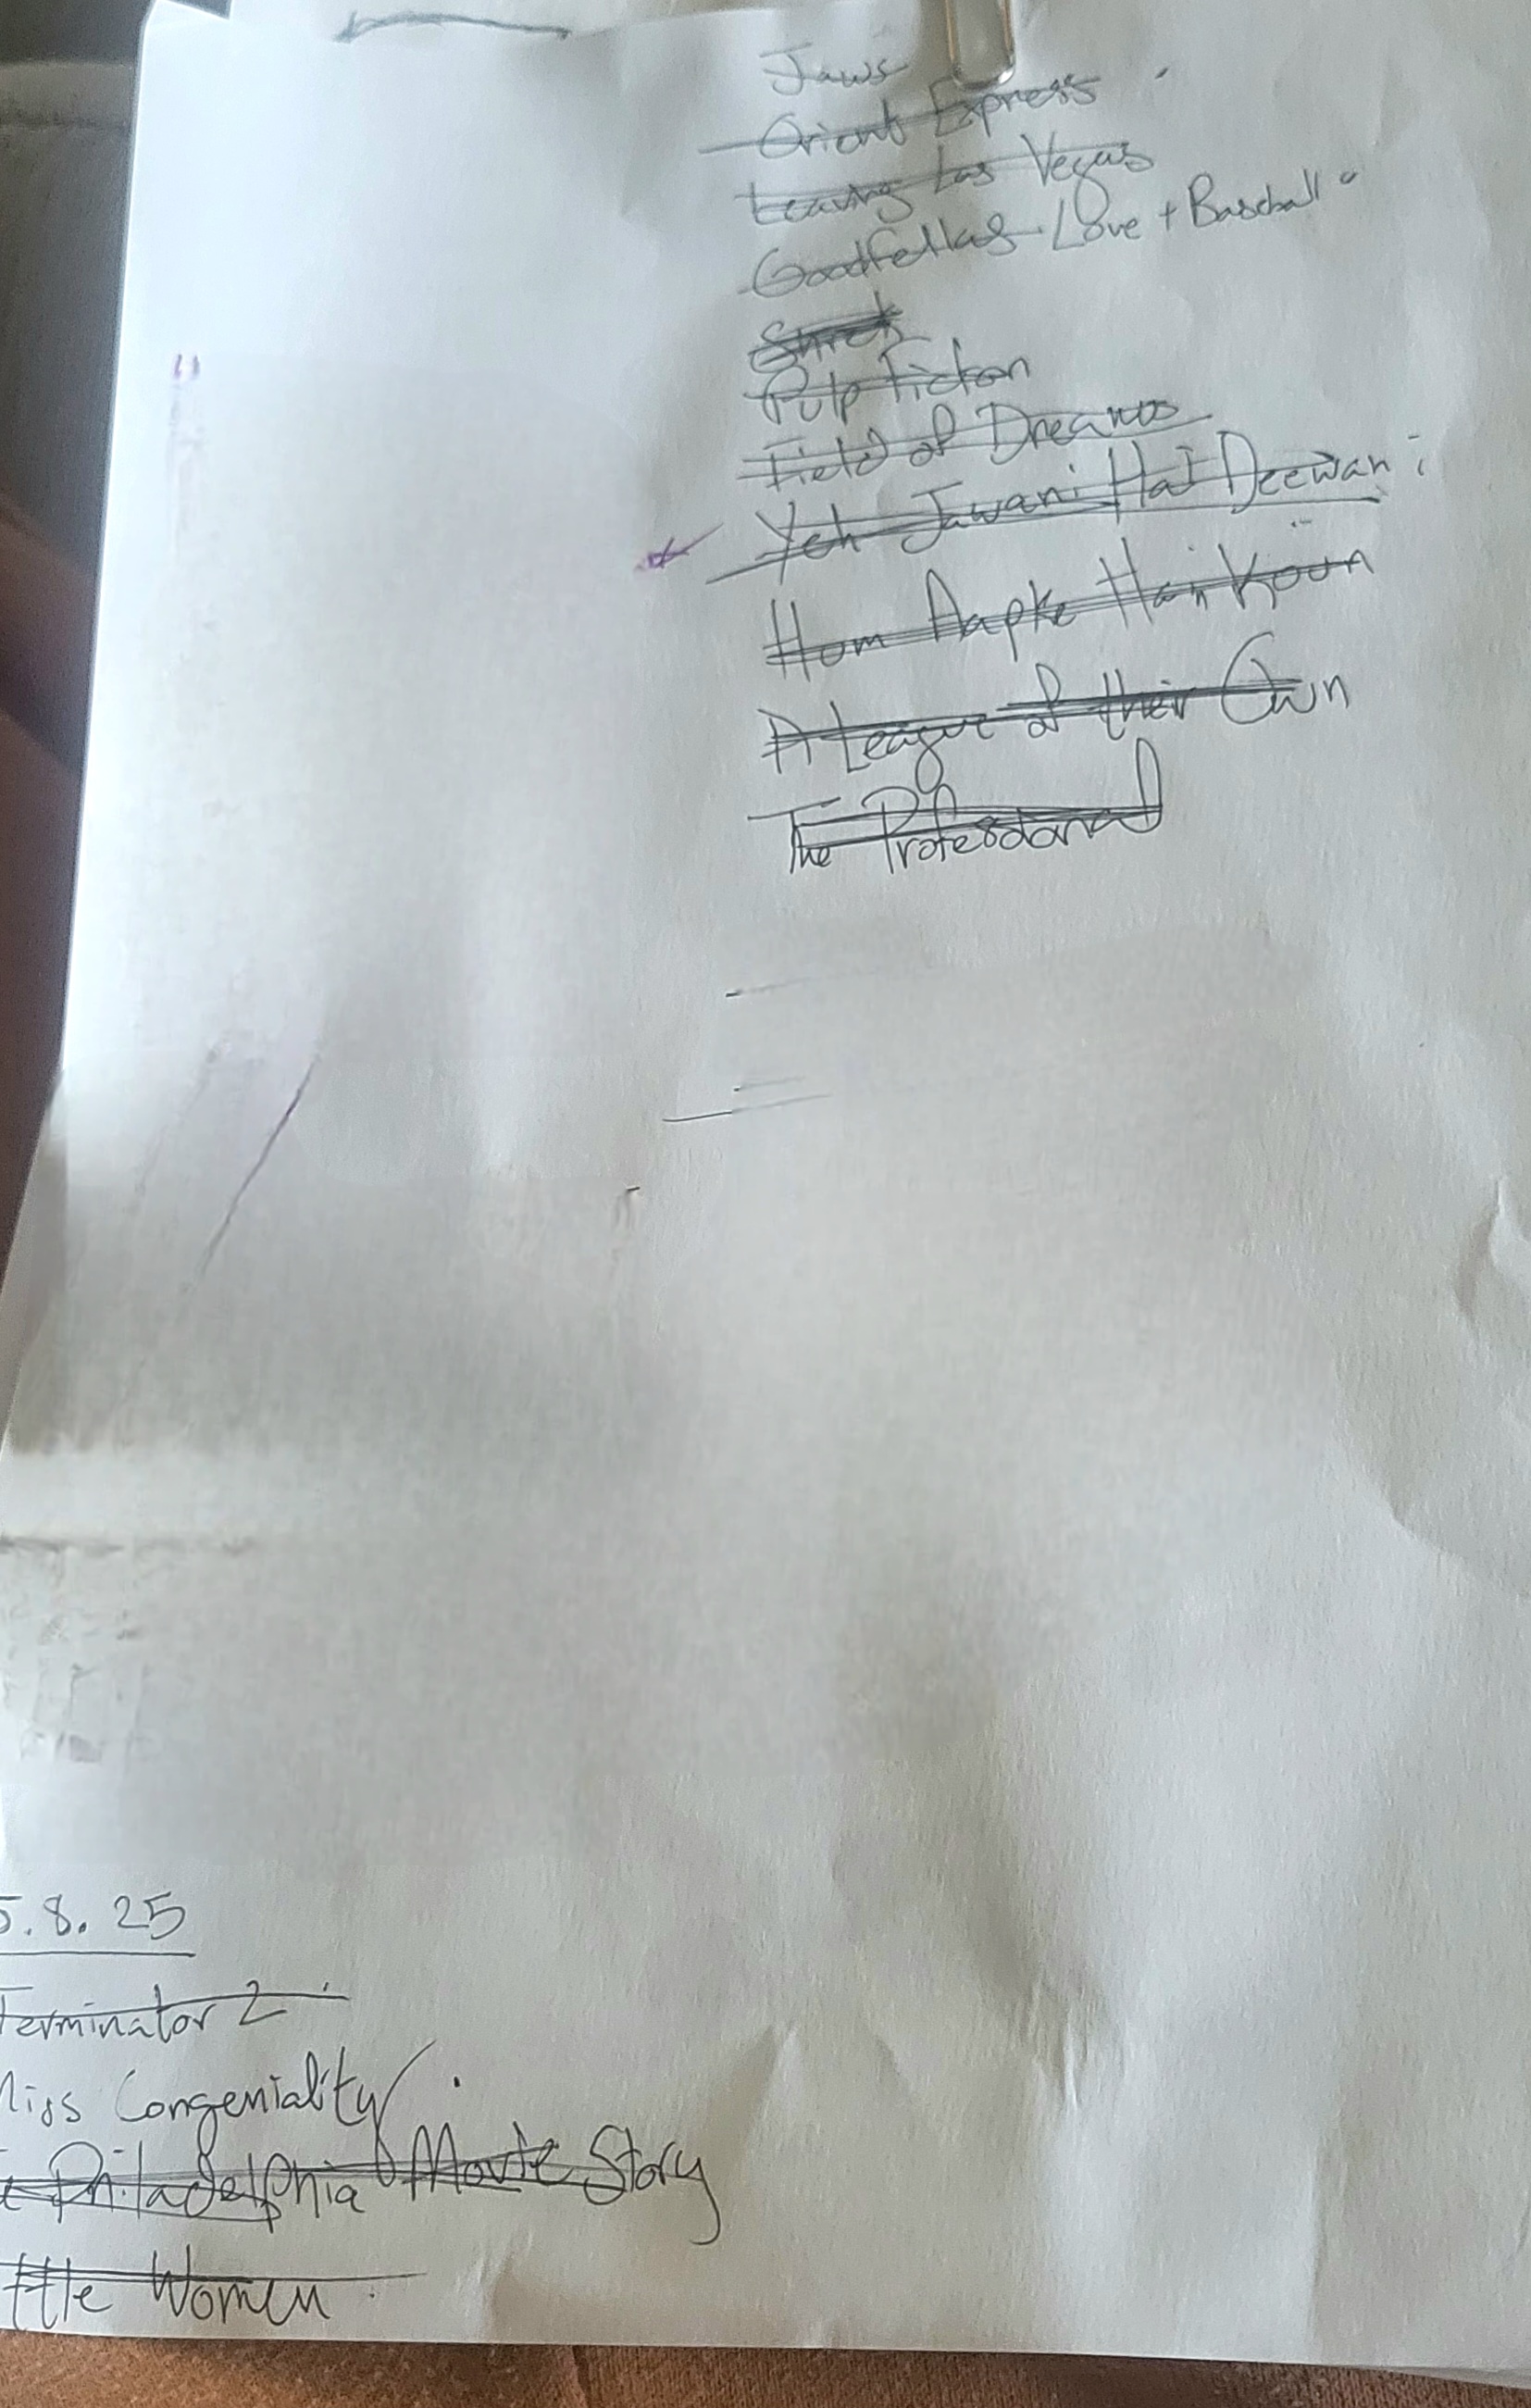 Jaws
Orient Express
Leaving Las Vegas
Goodfellas Love + Baseball
Shrek
Pulp Fiction
Field of Dreams
Yeh Jawani Hai Deewani
Hum Aapke Hain Koun
A League of their Own
The Professional
5.8.25
Terminator 2
Miss Congeniality
Philadelphia Movie Story
ttle Women